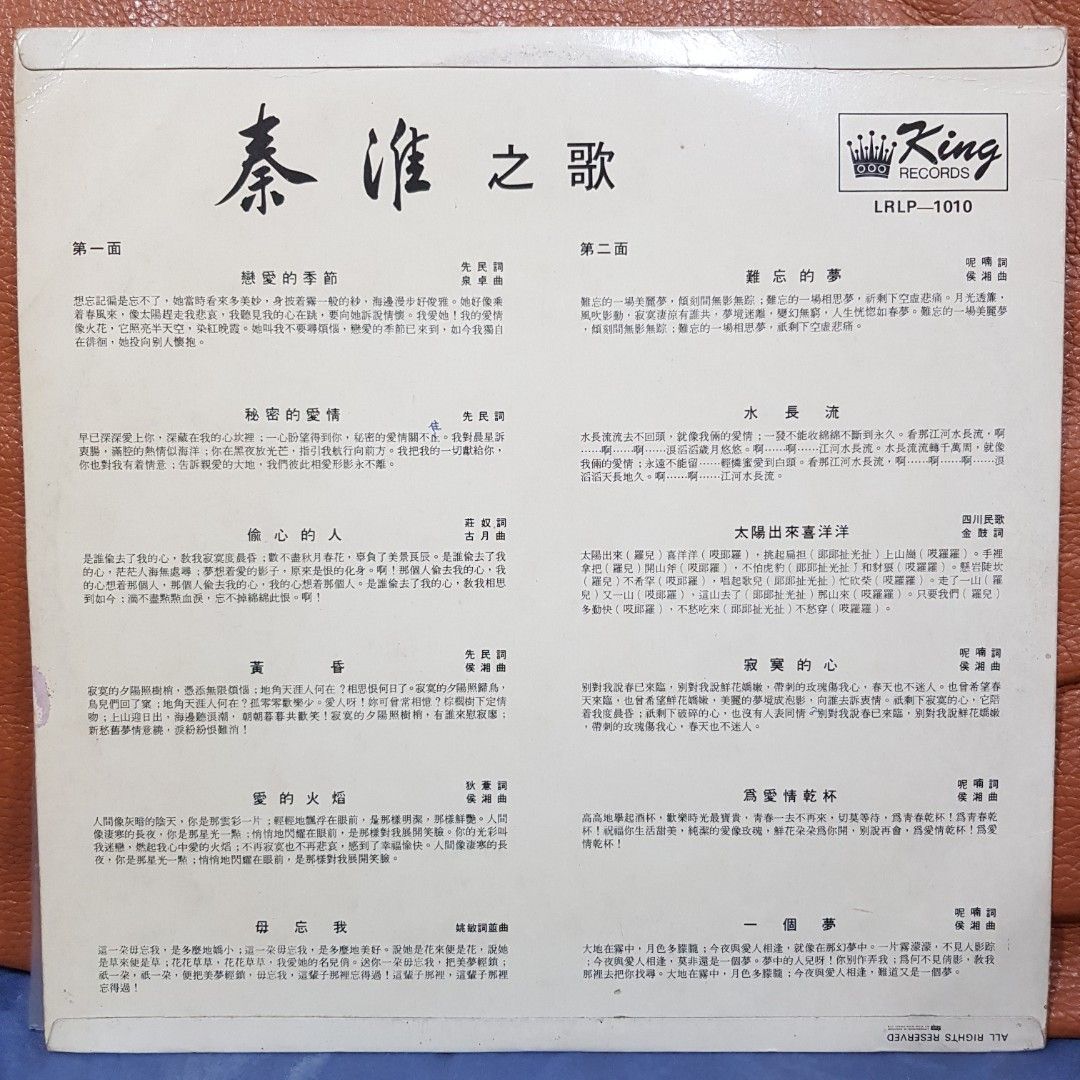 秦淮之歌
King
RECORDS
LRLP—1010
第一面
戀愛的季節
先民詞
泉卓曲
想忘記徧是忘不了，她當時看來多美妙，身披着霧一般的紗，海邊漫步好俊雅。她好像乘
着春風來，像太陽趕走我悲哀，我聽見我的心在跳，要向她訴說情懷。我愛她！我的愛情
像火花，它照亮半天空，染紅晚霞。她叫我不要尋煩惱，戀愛的季節已來到，如今我獨自
在徘徊，她投向別人懷抱。
秘密的愛情
先民詞
早已深深愛上你，深藏在我的心坎裡；一心盼望得到你，秘密的愛情關不住。我對晨星訴
衷腸，滿腔的熱情似海洋；你在黑夜放光芒，指引我航行向前方。我把我的一切獻給你，
你也對我有着情意；告訴親愛的大地，我們彼此相愛形影永不離。
偷心的人
莊奴詞
古月曲
是誰偷去了我的心，敎我寂寞度晨昏；數不盡秋月春花，辜負了美景良辰。是誰偷去了我
的心，茫茫人海無處尋；夢想着愛的影子，原來是恨的化身。啊！那個人偷去我的心，我
的心想着那個人，那個人偷去我的心，我的心想着那個人。是誰偷去了我的心，敎我相思
到如今；滴不盡點點血淚，忘不掉綿綿此恨。啊！
黃昏
先民詞
侯湘曲
寂寞的夕陽照樹梢，憑添無限煩惱；地角天涯人何在？相思恨何日了。寂寞的夕陽照歸鳥，
鳥兒們回了窠；地角天涯人何在？孤零零歡樂少。愛人呀！妳可曾常相憶？棕櫚樹下定情
吻；上山迎日出，海邊聽浪潮，朝朝暮暮共歡笑！寂寞的夕陽照樹梢，有誰來慰寂廖；
新愁舊夢情意繞，淚粉粉恨難消！
愛的火熖
狄薏詞
侯湘曲
人間像灰暗的陰天，你是那雲彩一片；輕輕地飄浮在眼前，是那樣明潔，那樣鮮艷。人間
像淒寒的長夜，你是那星光一點；悄悄地閃耀在眼前，是那樣對我展開笑臉。你的光彩叫
我迷戀，燃起我心中愛的火熖；不再寂寞也不再悲哀，感到了幸福愉快。人間像淒寒的長
夜，你是那星光一點；悄悄地閃耀在眼前，是那樣對我展開笑臉。
毋忘我
姚敏詞並曲
這一朵毋忘我，是多麼地嬌小；這一朵毋忘我，是多麼地美好。說她是花來便是花，說她
是草來便是草；花花草草，花花草草，我愛她的名兒俏。送你一朵毋忘我，把美夢輕鎖；
祇一朵，祇一朵，便把美夢輕鎖，毋忘我，這輩子那裡忘得過！這輩子那裡，這輩子那裡
忘得過！
第二面
難忘的夢
呢喃詞
侯湘曲
難忘的一場美麗夢，傾刻間無影無踪；難忘的一場相思夢，祈剩下空虛悲痛。月光透簾，
風吹影動，寂寞凄涼有誰共，夢境迷離，變幻無窮，人生恍惚如春夢。難忘的一場美麗夢
，傾刻間無影無踪；難忘的一場相思夢，祇剩下空虛悲痛。
水長流
水長流流去不回頭，就像我倆的愛情；一發不能收綿綿不斷到永久。看那江河水長流，啊
……啊……啊……浪滔滔歲月悠悠。啊……啊……江河水長流。水長流流轉千萬周，就像
我倆的愛情；永遠不能留……輕憐蜜愛到白頭。看那江河水長流，啊……啊……啊……浪
滔滔天長地久。啊……啊……江河水長流。
太陽出來喜洋洋
四川民歌
金鼓詞
太陽出來（羅兒）喜洋洋（哎郎羅），挑起扁担（郎郎扯光扯）上山崗（哎羅羅）。手裡
拿把（羅兒）開山斧（哎郎羅），不怕虎豹（郎郎扯光扯）和豺狼（哎羅羅）。懸岩陡坎
（羅兒）不希罕（哎郎羅），唱起歌兒（郎郎扯光扯）忙砍柴（哎羅羅）。走了一山（羅
兒）又一山（哎郎羅），這山去了（郎郎扯光扯）那山來（哎羅羅）。只要我們（羅兒）
多勤快（哎郎羅），不愁吃來（郎郎扯光扯）不愁穿（哎羅羅）。
寂寞的心
呢喃詞
侯湘曲
別對我說春已來臨，別對我說鮮花嬌嫩，帶刺的玫瑰傷我心，春天也不迷人。也曾希望春
天來臨，也曾希望鮮花嬌嫩，美麗的夢境成泡影，向誰去訴衷情。祇剩下寂寞的心，它陪
着我度晨昏；祇剩下破碎的心，也沒有人表同情。別對我說春已來臨，別對我說鮮花嬌嫩
，帶刺的玫瑰傷我心，春天也不迷人。
爲愛情乾杯
呢喃詞
侯湘曲
高高地擧起酒杯，歡樂時光最寶貴，青春一去不再來，切莫等待，爲青春乾杯！爲青春乾
杯！祝福你生活甜美，純潔的愛像玫瑰，鮮花朵朵爲你開，別說再會，爲愛情乾杯！爲愛
情乾杯！
一個夢
呢喃詞
侯湘曲
大地在霧中，月色多朦朧；今夜與愛人相逢，就像在那幻夢中。一片霧濛濛，不見人影踪
；今夜與愛人相逢，莫非還是一個夢。夢中的人兒呀！你別作弄我；爲何不見倩影，敎我
那裡去把你找尋。大地在霧中，月色多朦朧；今夜與愛人相逢，難道又是一個夢。
ALL RIGHTS RESERVED